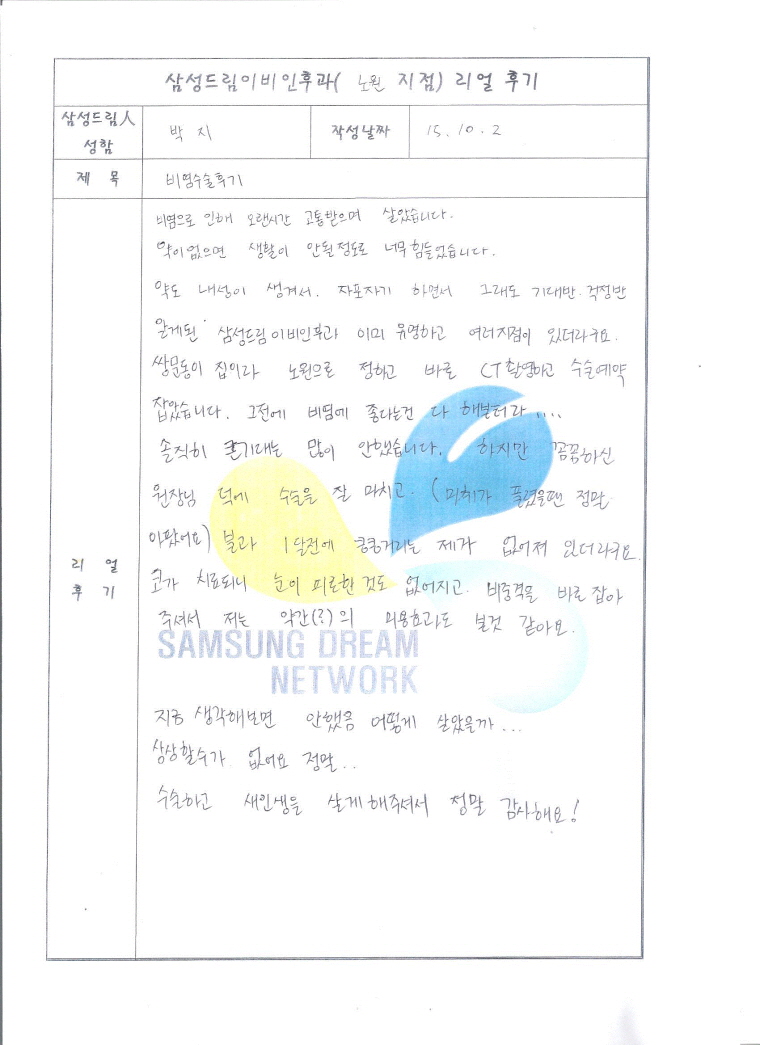 삼성드림이비인후과( 노원 지점) 리얼 후기
삼성드림人 성함
박 지
작성날짜
15. 10. 2
제 목
비염수술후기
리 얼 후 기
비염으로 인해 오랜시간 고통받으며 살았습니다.
약이 없으면 생활이 안될정도로 너무 힘들었습니다.
약도 내성이 생겨서. 자포자기 하면서 그래도 기대반. 걱정반
알게된 삼성드림이비인후과 이미 유명하고 여러지점이 있더라구요.
쌍문동이 집이라 노원으로 정하고 바로 CT촬영하고 수술예약
잡았습니다. 그전에 비염에 좋다는건 다 해봤더라....
솔직히 큰기대는 많이 안했습니다. 하지만 꼼꼼하신
원장님 덕에 수술을 잘 마치고. (마취가 풀렸을땐 정말
아팠어요) 불과 1달전에 킁킁거리는 제가 없어져 있더라구요.
코가 치료되니 눈이 피로한것도 없어지고. 비중격을 바로잡아
주셔서 저는 약간(?)의 미용효과도 볼것 같아요.
SAMSUNG DREAM
NETWORK
지금 생각해보면 안했음 어떻게 살았을까...
상상할수가 없어요 정말..
수술하고 새인생을 살게해주셔서 정말 감사해요!